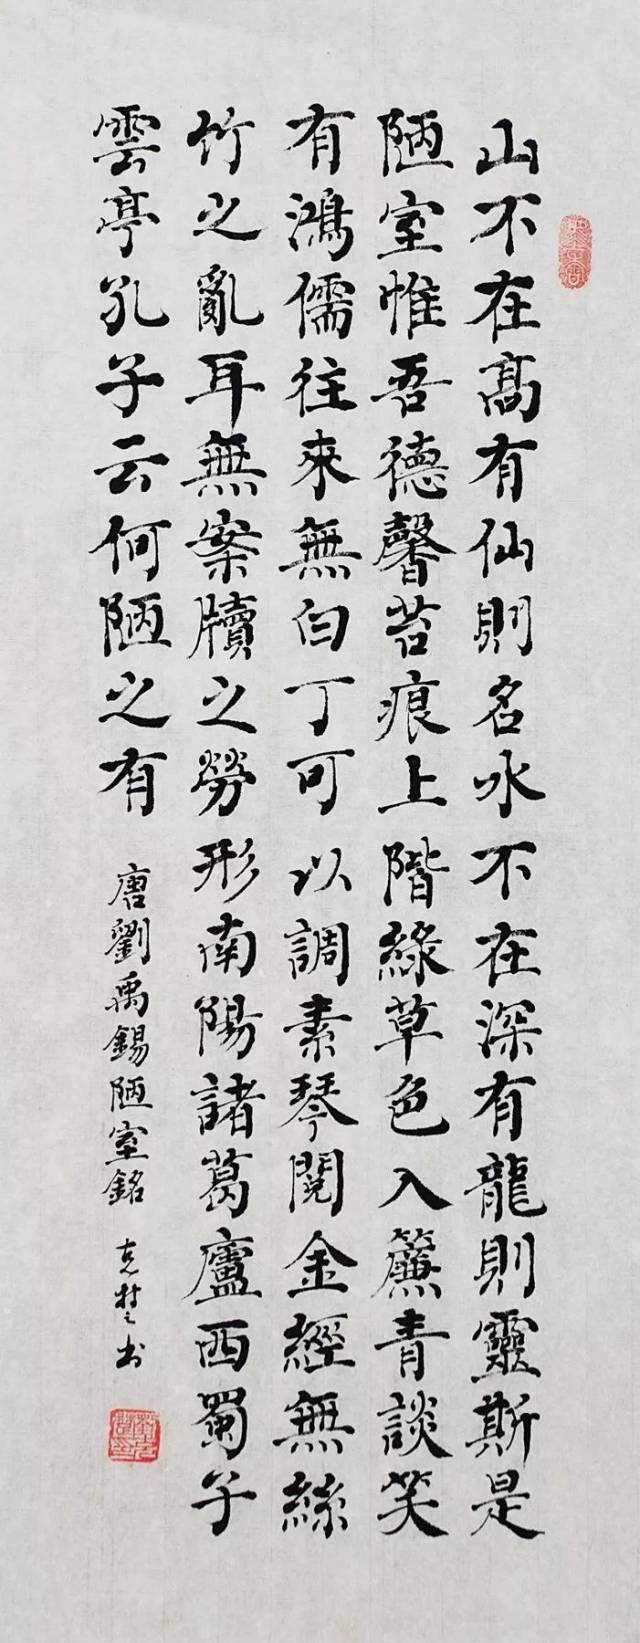 山不在高有仙則名水不在深有龍則靈斯是
陋室惟吾德馨苔痕上階綠草色入簾青談笑
有鴻儒往來無白丁可以調素琴閱金經無絲
竹之亂耳無案牘之勞形南陽諸葛廬西蜀子
雲亭孔子云何陋之有
唐劉禹錫陋室銘
克楚书